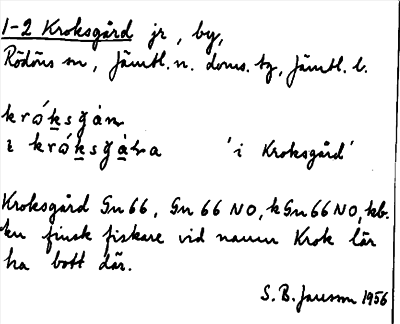 1-2 Kroksgård jr, by,
Rödöns sn, Jämtl. n. doms. tg, Jämtl. l.
kró̱ksgán
i kró̱ksgá̱ɽa 'i Kroksgård'
Kroksgård Gn 66, Gn 66 NO, k Gn 66 NO, kb.
En finsk fiskare vid namn Krok lär
ha bott där.
S. B. Jansson 1956